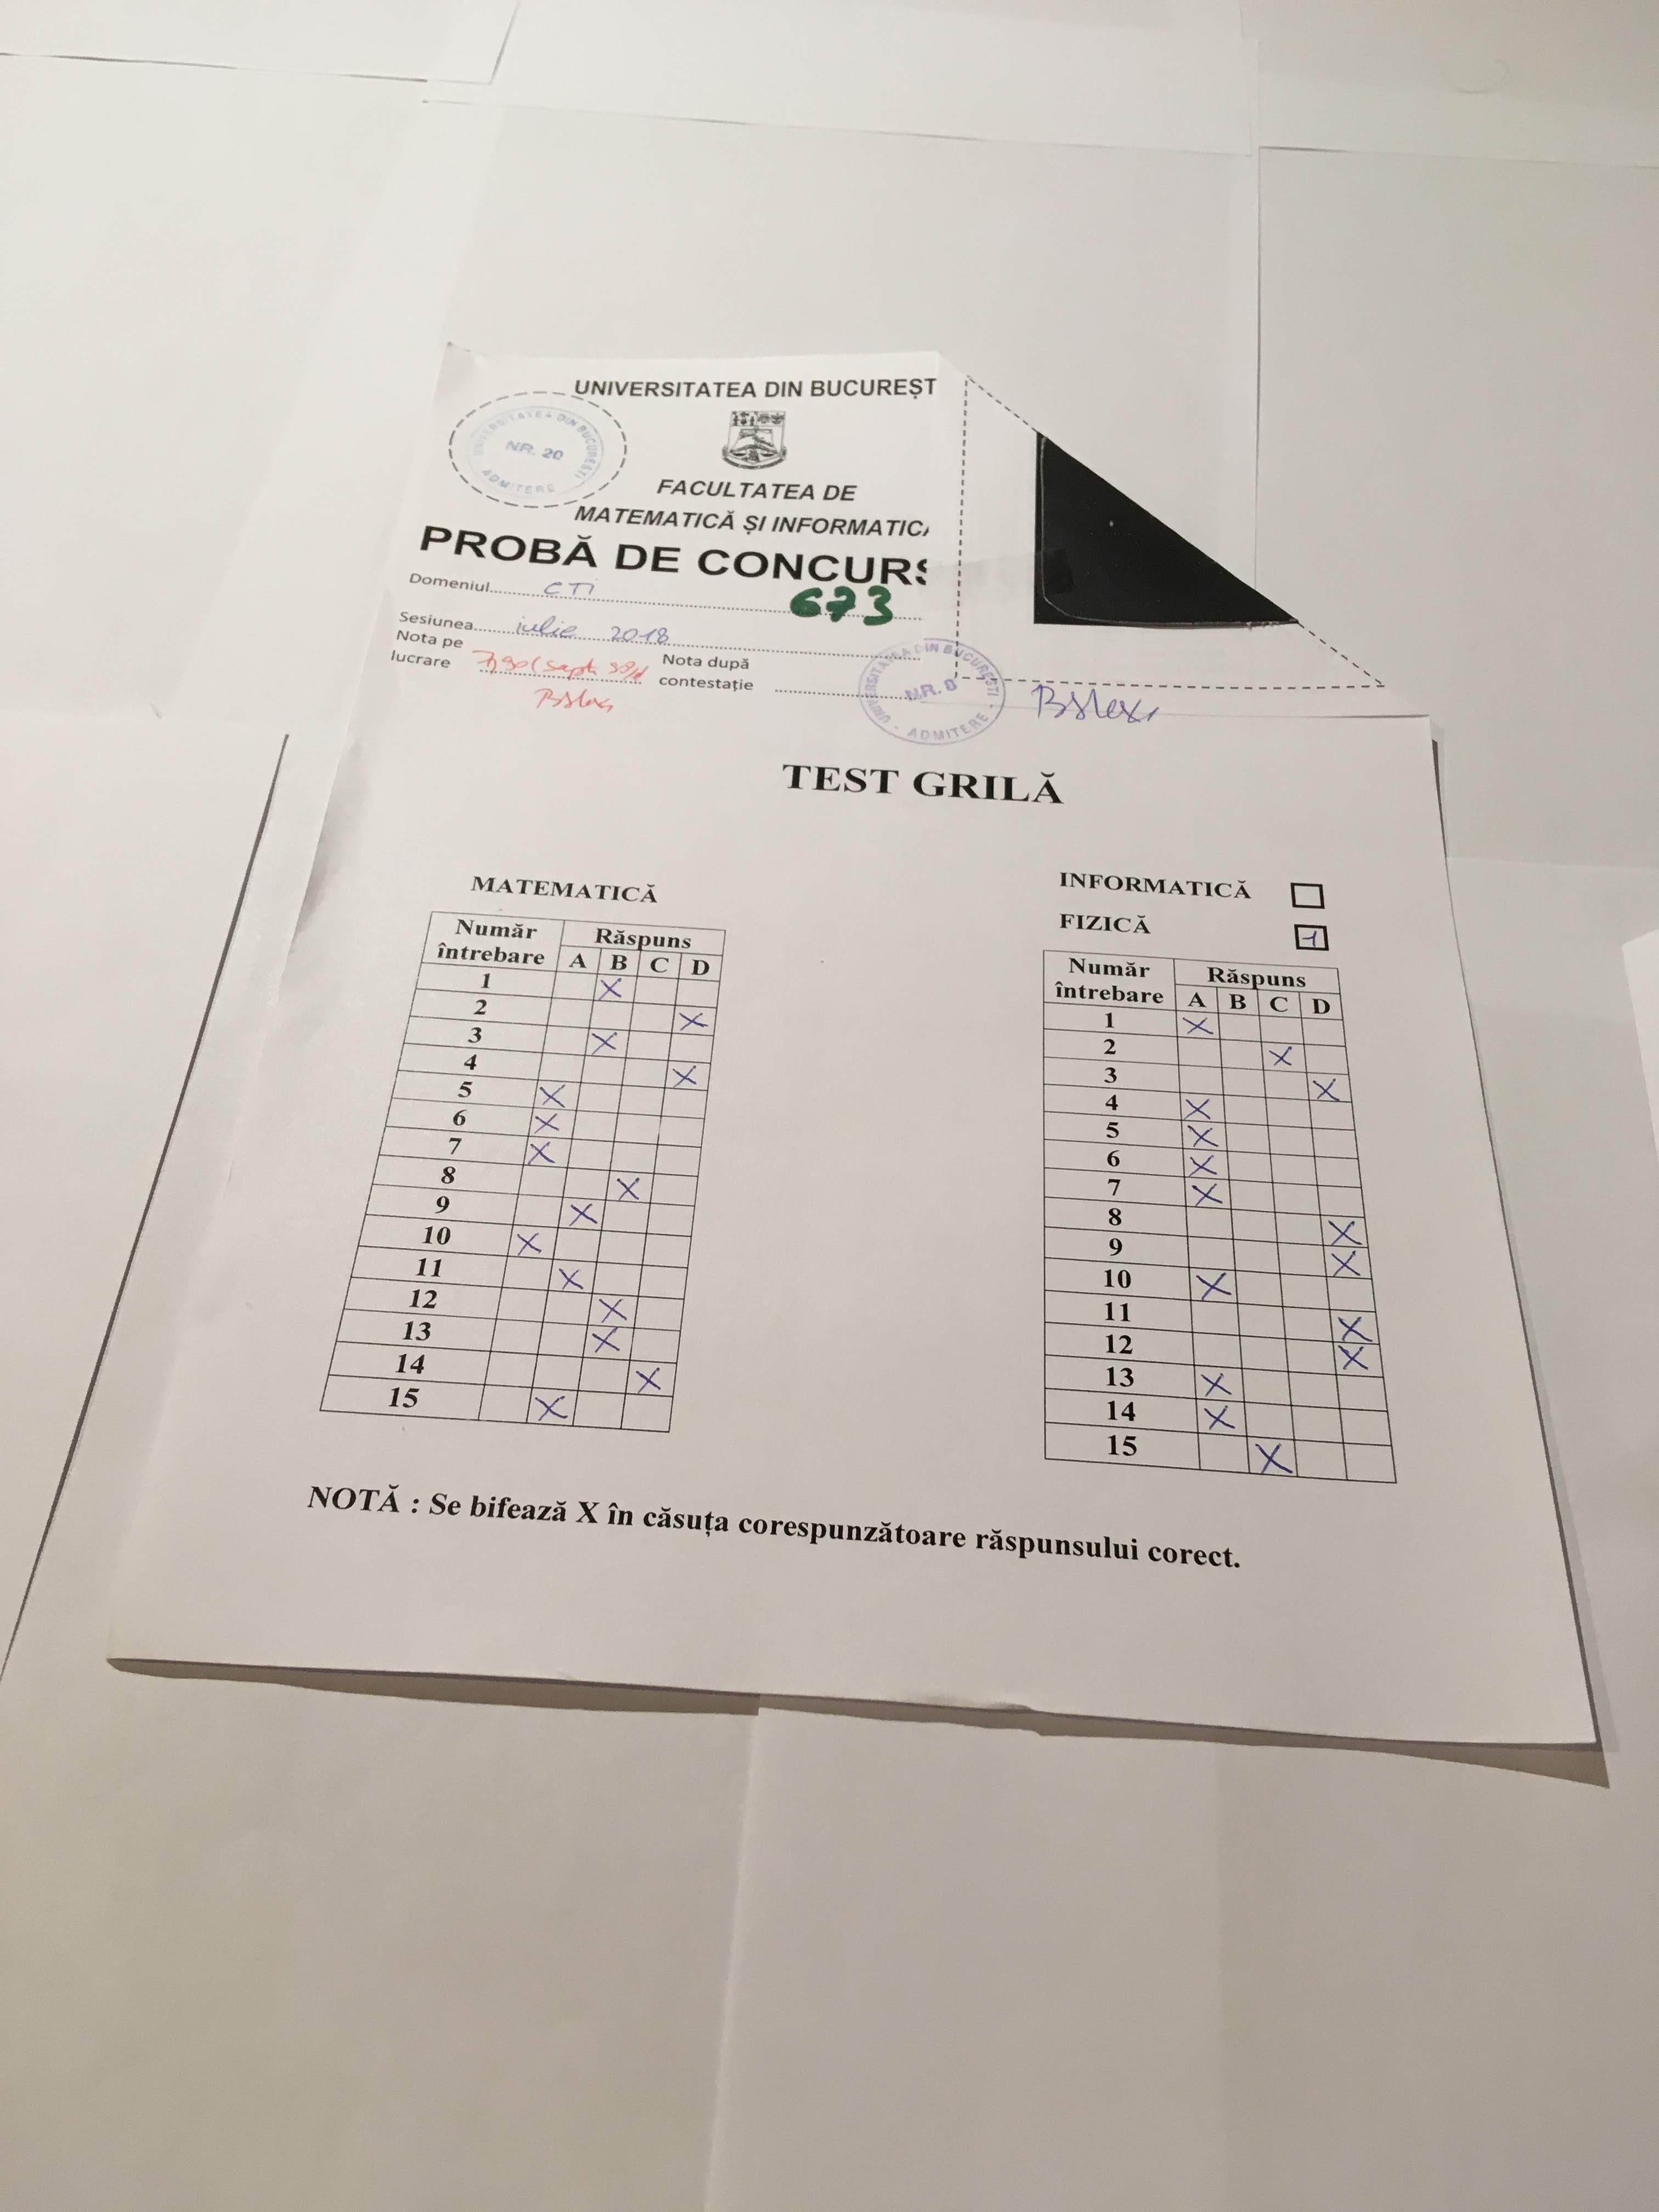 UNIVERSITATEA DIN BUCUREȘT
UNIVERSITATEA DIN BUCUREȘTI
NR. 20
ADMITERE
FACULTATEA DE
MATEMATICĂ ȘI INFORMATIC
PROBĂ DE CONCURS
Domeniul CTI
673
Sesiunea iulie 2018
Nota pe lucrare 7,90 (șapte 90%)
Nota după contestație
UNIVERSITATEA DIN BUCUREȘTI
NR. 8
ADMITERE
TEST GRILĂ
MATEMATICĂ
Număr întrebare Răspuns
A B C D
1 X
2 X
3 X
4 X
5 X
6 X
7 X
8 X
9 X
10 X
11 X
12 X
13 X
14 X
15 X
INFORMATICĂ
FIZICĂ 1
Număr întrebare Răspuns
A B C D
1 X
2 X
3 X
4 X
5 X
6 X
7 X
8 X
9 X
10 X
11 X
12 X
13 X
14 X
15 X
NOTĂ : Se bifează X în căsuța corespunzătoare răspunsului corect.